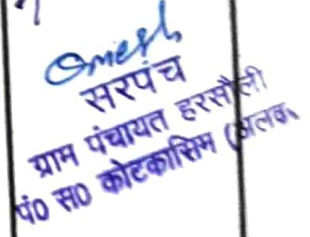 Omesh
सरपंच
ग्राम पंचायत हरसौली
पं0 स0 कोटकासिम (अलव